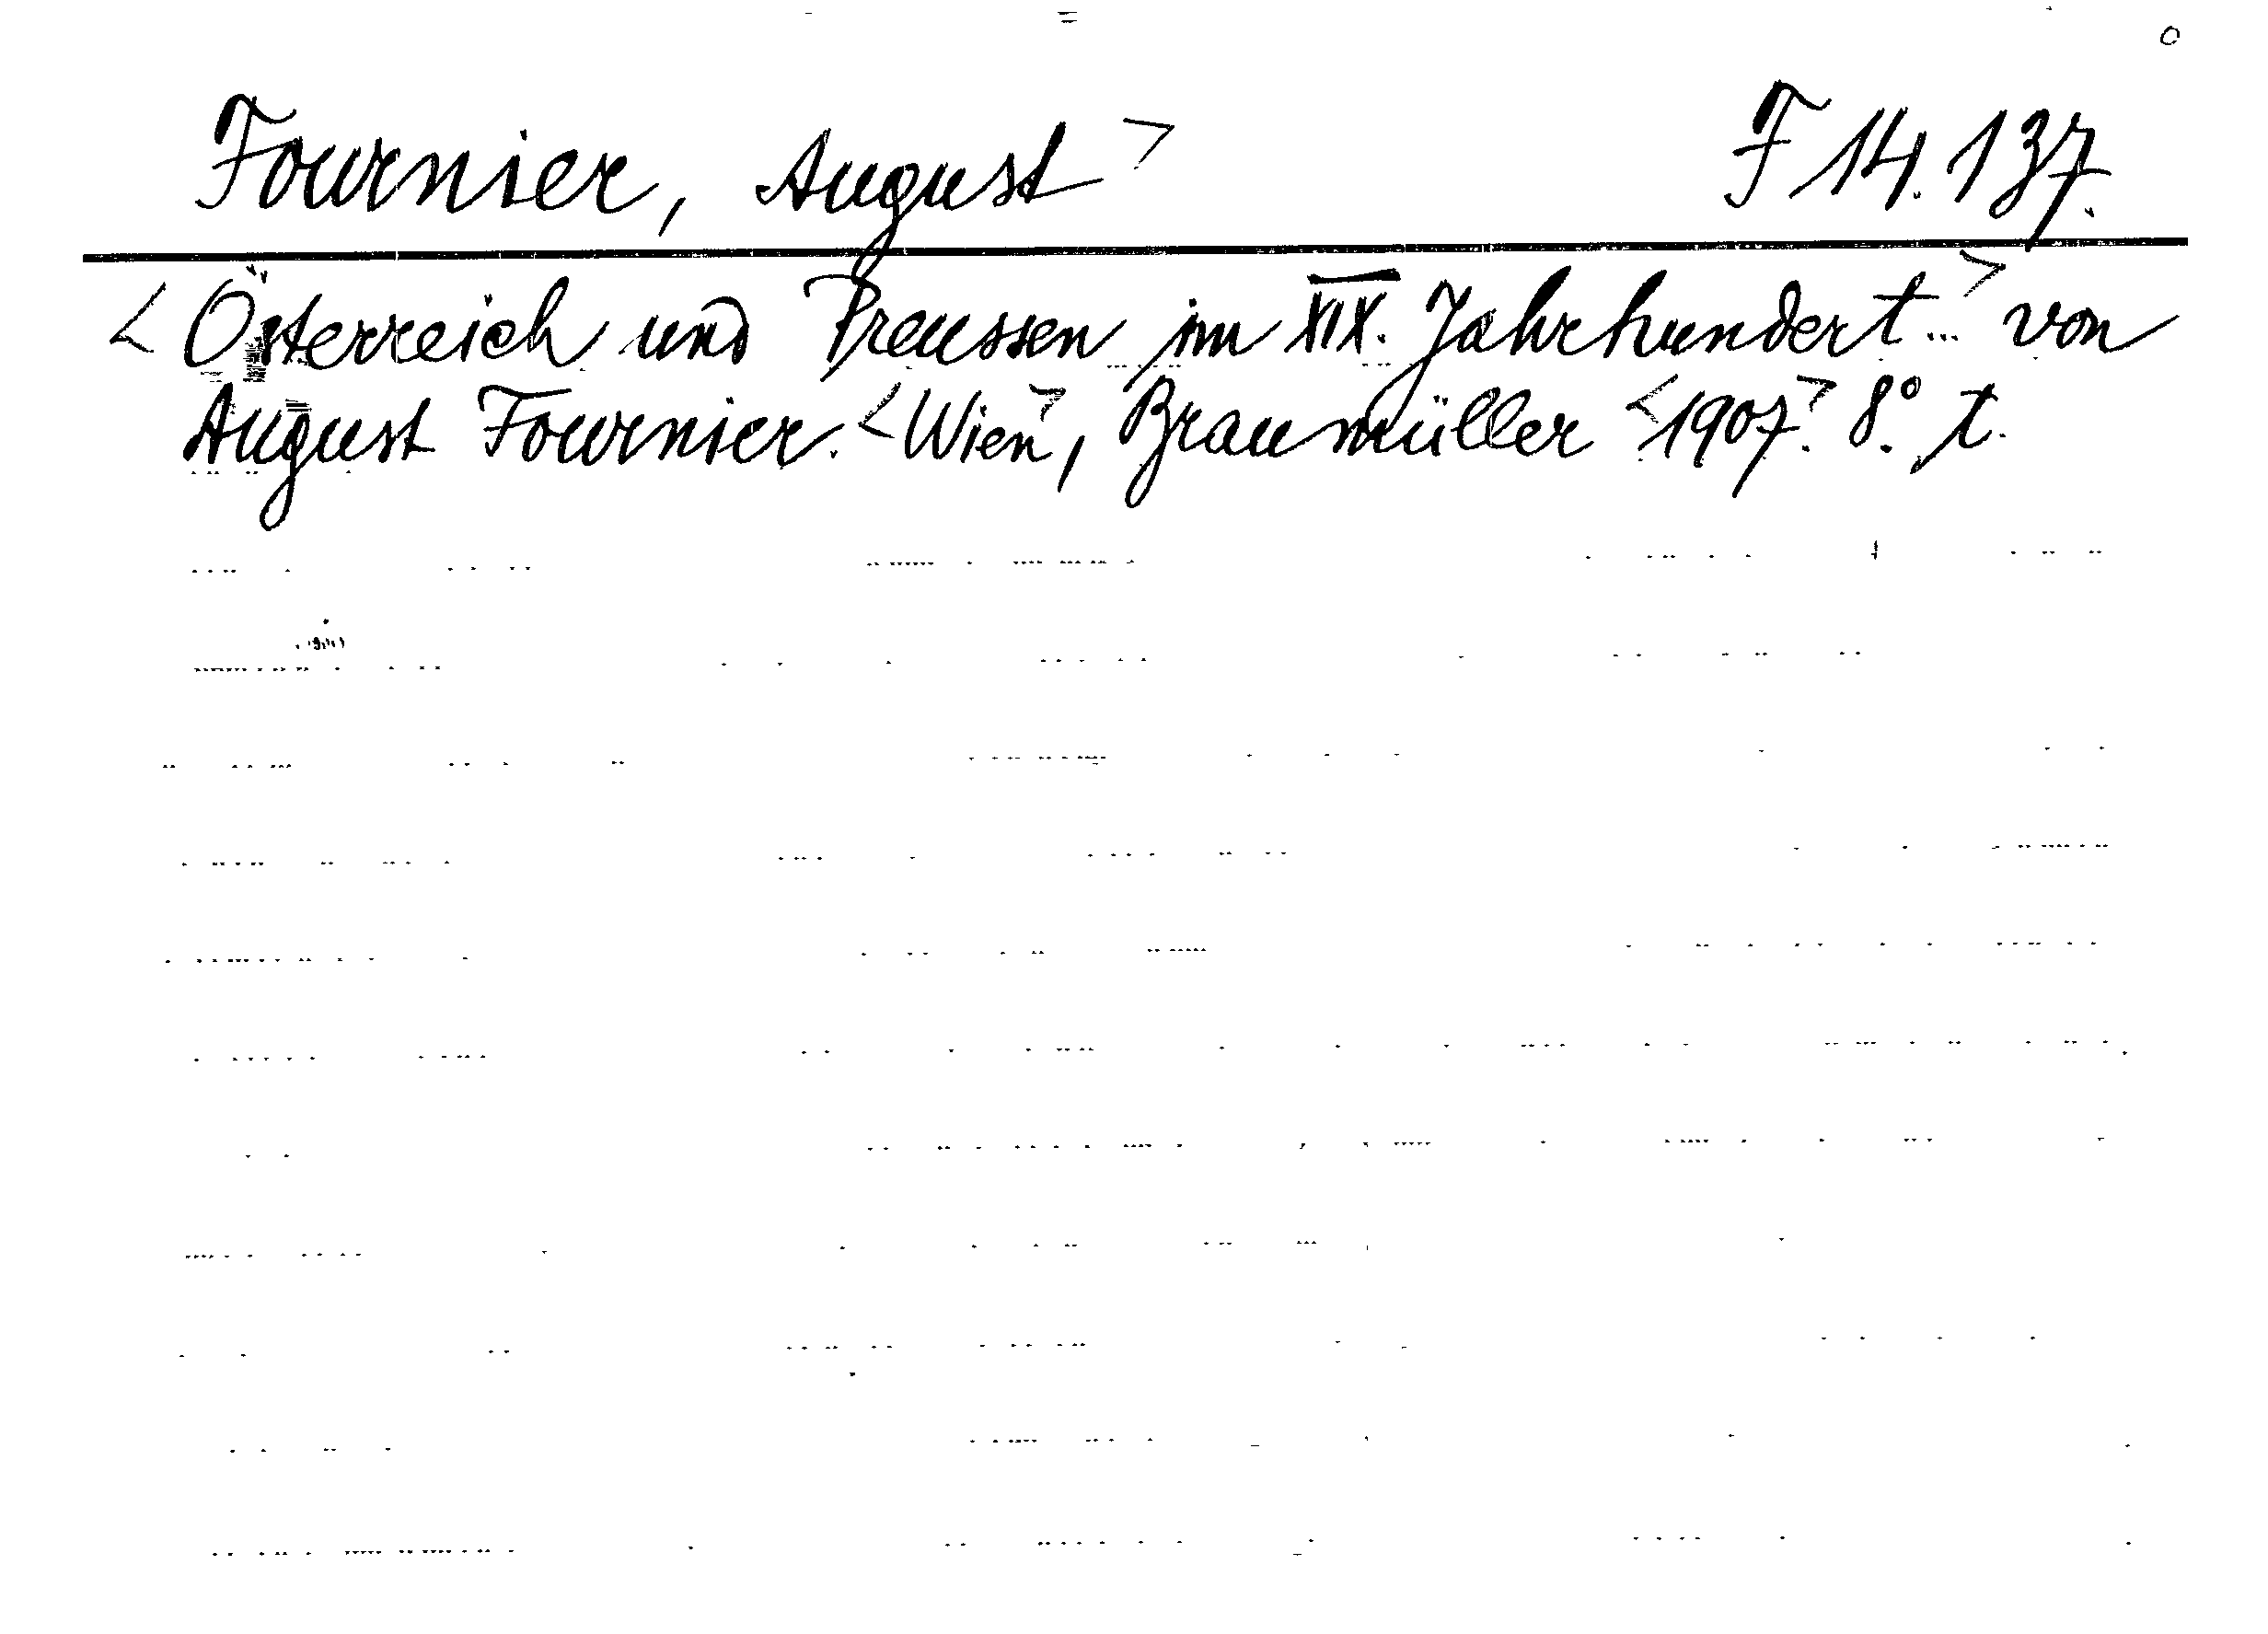 Fournier, August> F 14.137.
<Österreich und Preussen im XIX. Jahrhundert...> von
August Fournier. <Wien>, Braumüller <1907>. 8°. t.